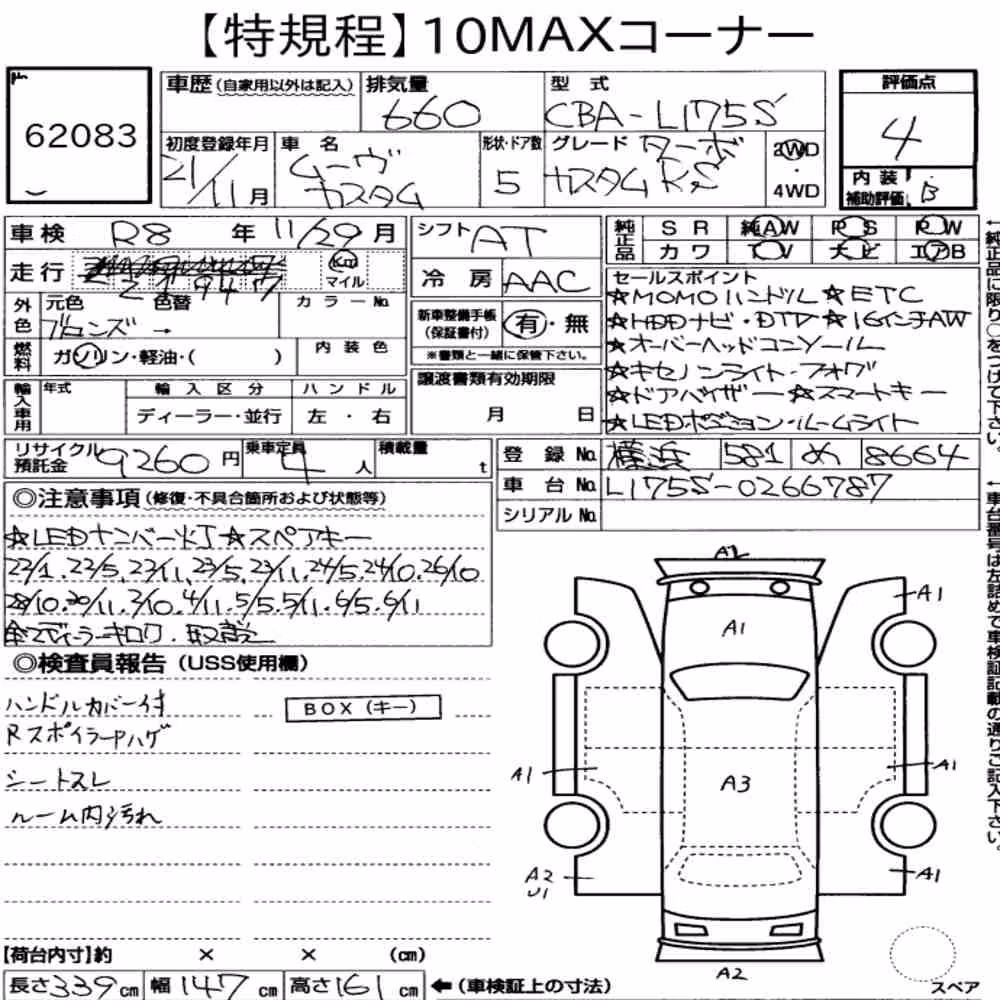 【特規程】10MAXコーナー
62083
車歴 (自家用以外は記入) 排気量 型式 評価点
660 CBA-L175S 4
初度登録年月 車名 形状・ドア数 グレード 2WD・4WD
21/11月 ムーヴ カスタム 5 ターボ カスタムRS
内装補助評価 B
車検 R8年 11/29月 シフト AT
純正品 SR 純AW PS PW
カワ TV 大ビ エアB
走行 Km マイル 冷房 AAC
外色 元色 色替 カラーNo.
ブロンズ →
新車整備手帳(保証書付) 有・無
※書類と一緒に保管下さい。
燃料 ガソリン・軽油・( ) 内装色
譲渡書類有効期限
月 日
輸入車用 年式 輸入区分 ハンドル
ディーラー・並行 左・右
セールスポイント
☆MOMOハンドル ☆ETC
☆HDDナビ・DTV ☆16インチAW
☆オーバーヘッドコンソール
☆キセノンライト・フォグ
☆ドアバイザー ☆スマートキー
☆LEDポジション・ルームライト
リサイクル預託金 9260円 乗車定員 4人 積載量 t
登録No. 横浜 581 め 8664
車台No. L175S-0266787
シリアルNo.
◎注意事項 (修復・不具合箇所および状態等)
☆LEDナンバー灯 ☆スペアキー
22/1.22/5.22/11.23/5.23/11.24/5.24/10.26/10
28/10.30/11.2/10.4/11.5/5.5/11.6/5.6/11
全てディーラーキロク.取責亡
◎検査員報告 (USS使用欄)
ハンドルカバー付
BOX (キー)
RスポイラーPハゲ
シートスレ
ルーム内汚れ
A2
A1
A1
A1
A1
A3
A2
U1
A1
A2
スペア
【荷台内寸】約 × × (cm)
長さ339cm 幅147cm 高さ161cm ←(車検証上の寸法)
←純正品に限り○をつけて下さい。
←車台番号は左詰めで車検証記載の通りご記入下さい。